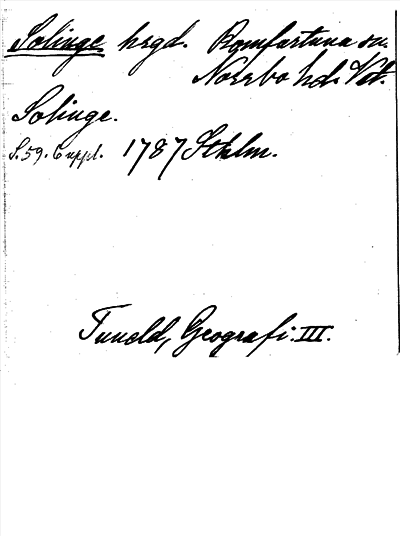 Solinge hrgd. Romfartuna sn.
Norrbo hd. Vst.
Solinge.
S. 59. 6 uppl. 1787 Sthlm.
Tuneld, Geografi. III.